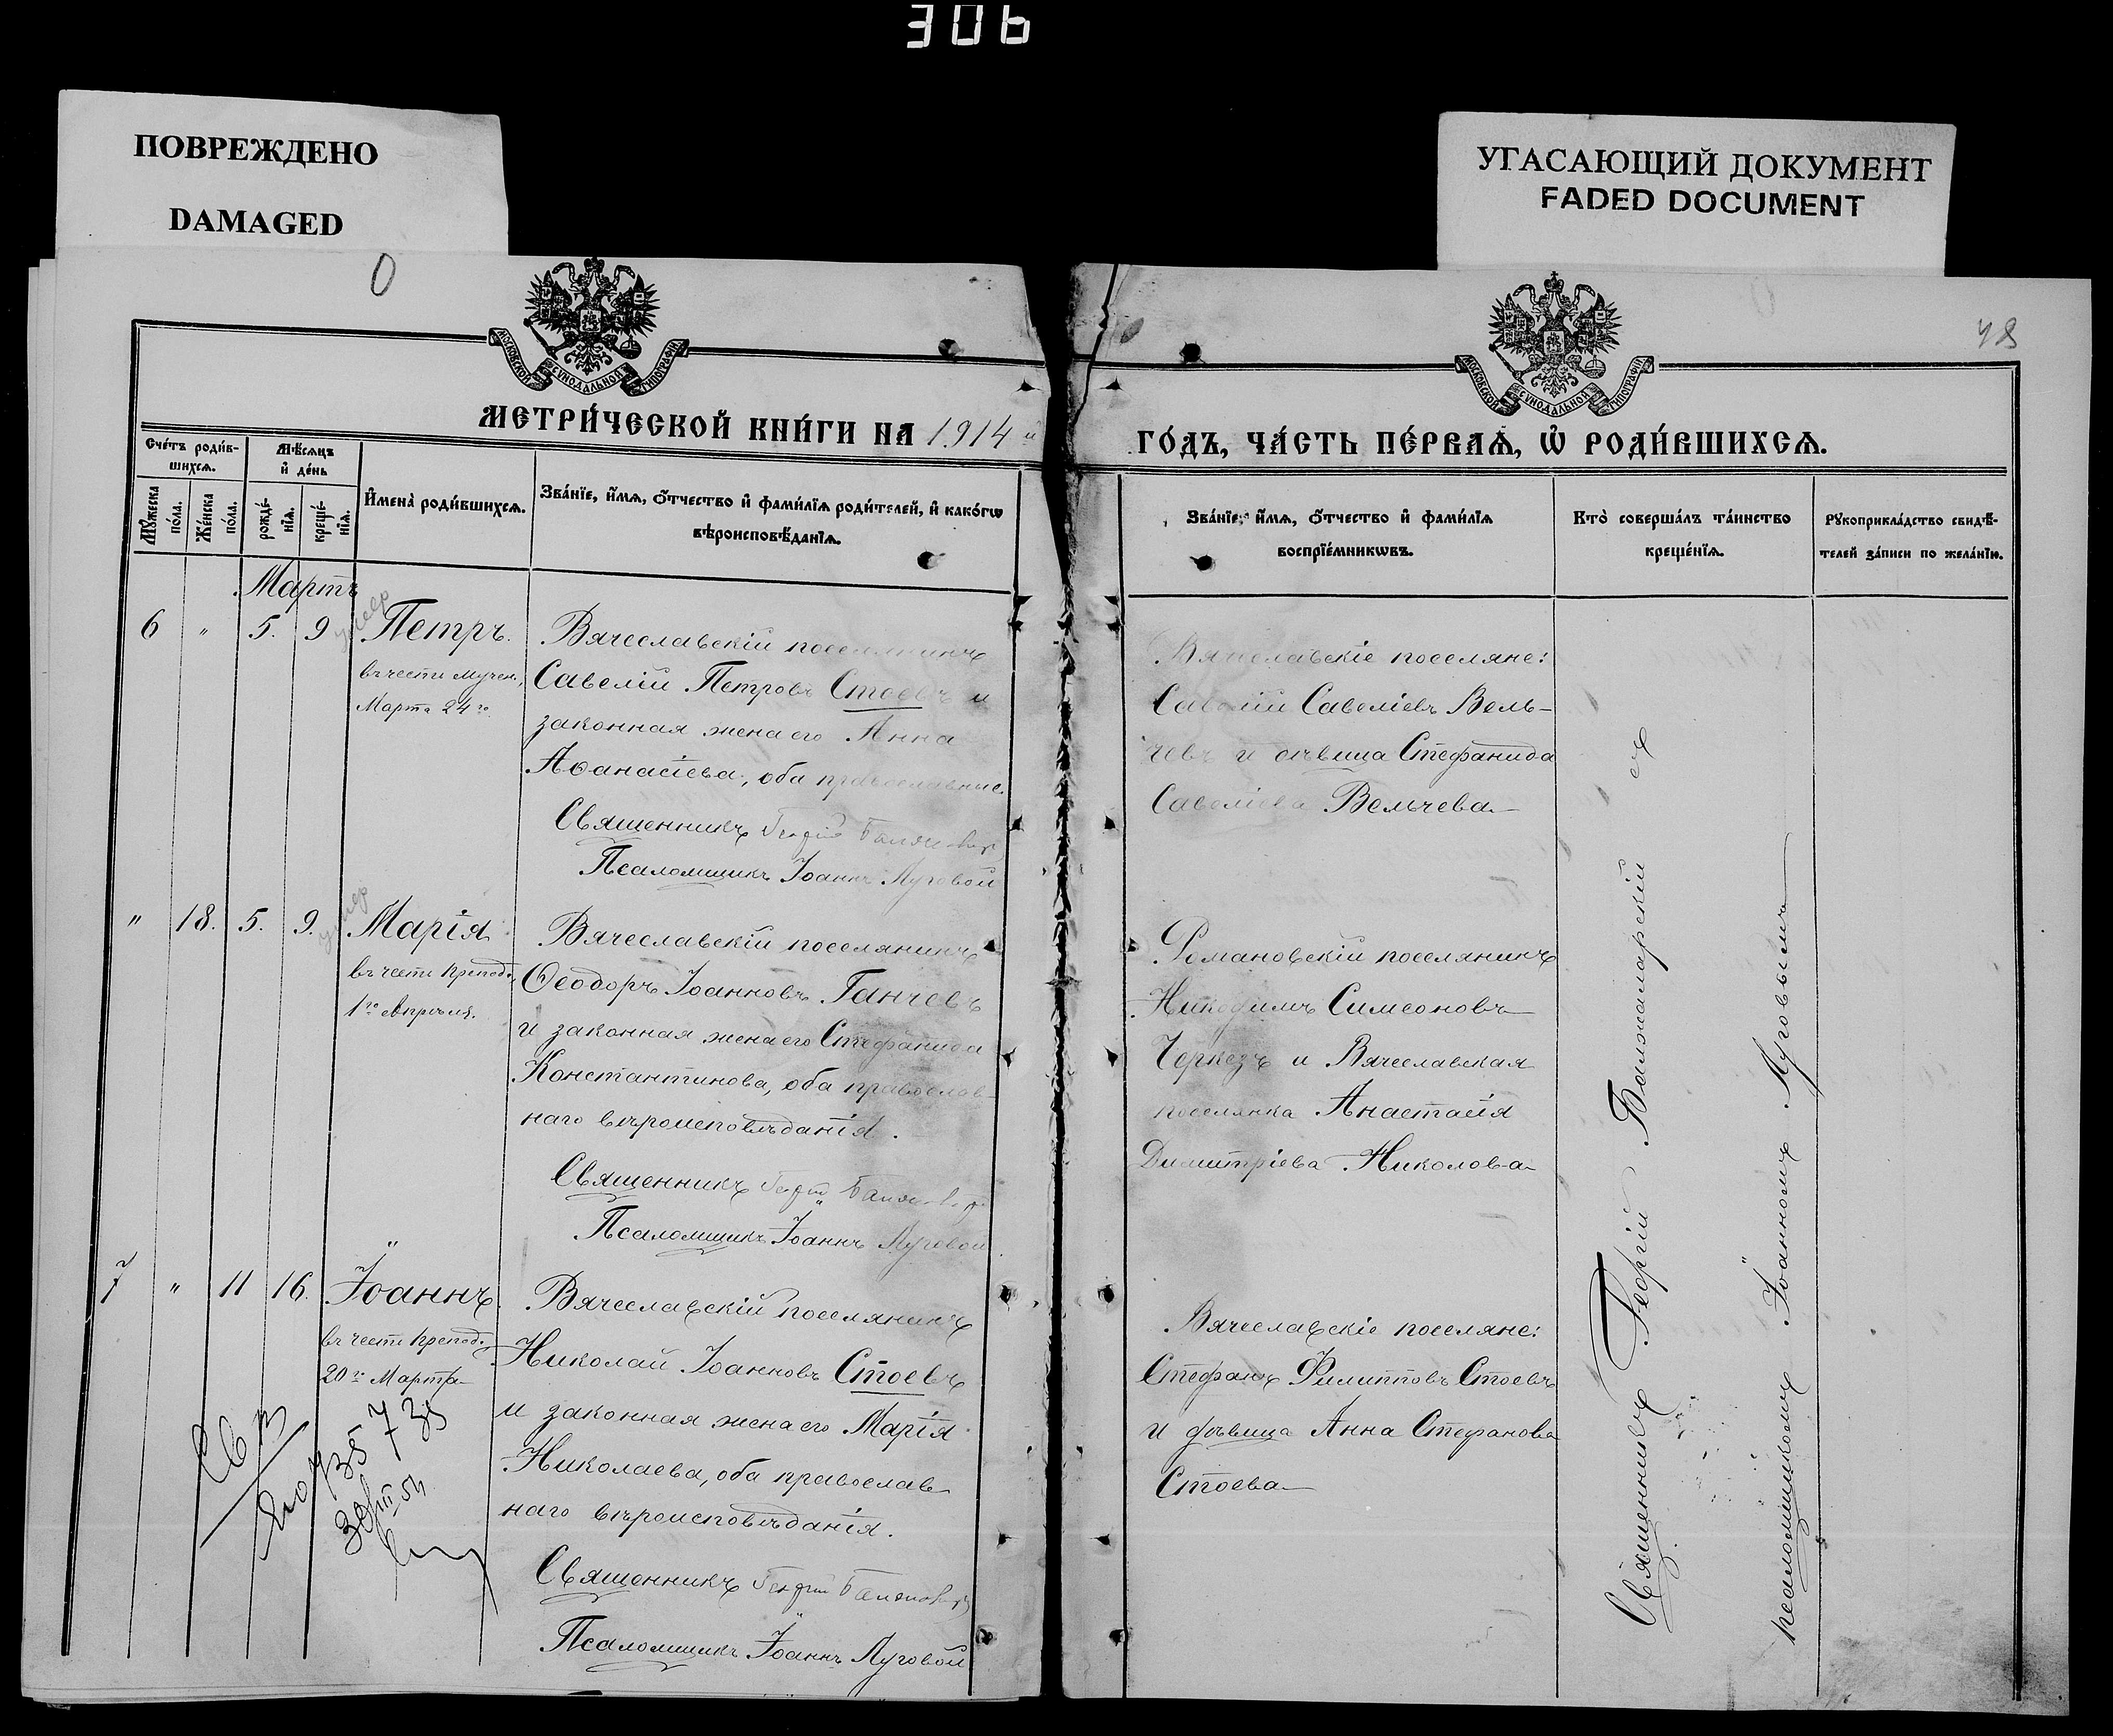 306
ПОВРЕЖДЕНО
DAMAGED
УГАСАЮЩИЙ ДОКУМЕНТ
FADED DOCUMENT
0
48
МОСКОВСКОЙ СУНОДАЛЬНОЙ ТИПОГРАФІИ
МОСКОВСКОЙ СУНОДАЛЬНОЙ ТИПОГРАФІИ
МЕТРИ́ЧЕСКОЙ КНИ́ГИ НА 1914 й
ГО́ДЪ, ЧА́СТЬ ПЕ́РВАѦ, Ѡ҆ РОДИ́ВШИХСѦ.
Сче́тъ роди́в-
шихсѧ.
Мѣ́сѧцъ
и҆ де́нь
Мꙋ́жеска
по́ла.
Же́нска
по́ла.
рожде́-
нїѧ.
креще́-
нїѧ.
И҆мена̀ роди́вшихсѧ.
Зва́нїе, и҆́мѧ, ѻ҆́тчество и҆ фами́лїѧ роди́телей, и҆ како́гѡ
вѣроисповѣ́данїѧ.
Зва́нїе, и҆́мѧ, ѻ҆́тчество и҆ фами́лїѧ
воспрїе́мникѡвъ.
Кто̀ соверша́лъ та́инство
креще́нїѧ.
Рꙋкоприкла́дство свидѣ́-
телей за́писи по жела́нїю.
Мартъ
6 " 5. 9 умер Петръ.
въ чести мучен.,
Марта 24го
Вячеславскій поселянинъ
Савелій Петровъ Стоевъ и
законная жена его Анна
Аѳанасіева, оба православные.
Священникъ Георгій
Псаломщикъ Іоаннъ Луговой
Вячеславскіе поселяне:
Савелій Савеліевъ Вель-
чевъ и дѣвица Стефанида
Савеліева Вельчева
" 18. 5. 9. умер Марія
въ чести препод.,
1го Апрѣля.
Вячеславскій поселянинъ
Ѳеодоръ Іоанновъ Ганчевъ
и законная жена его Стефанида
Константинова, оба православ-
наго вѣроисповѣданія.
Священникъ Георгій
Псаломщикъ Іоаннъ Луговой
Романовскій поселянинъ
Никодимъ Симеоновъ
Черкезъ и Вячеславская
поселянка Анастасія
Димитріева Николова
7 " 11 16. Іоаннъ.
въ чести препод.,
20го Марта
Вячеславскій поселянинъ
Николай Іоанновъ Стоевъ
и законная жена его Марія
Николаева, оба православ-
наго вѣроисповѣданія.
Священникъ Георгій
Псаломщикъ Іоаннъ Луговой
Вячеславскіе поселяне:
Стефанъ Филипповъ Стоевъ
и дѣвица Анна Стефанова
Стоева
Священникъ Георгій Балжаларскій съ
псаломщикомъ Іоанномъ Луговымъ